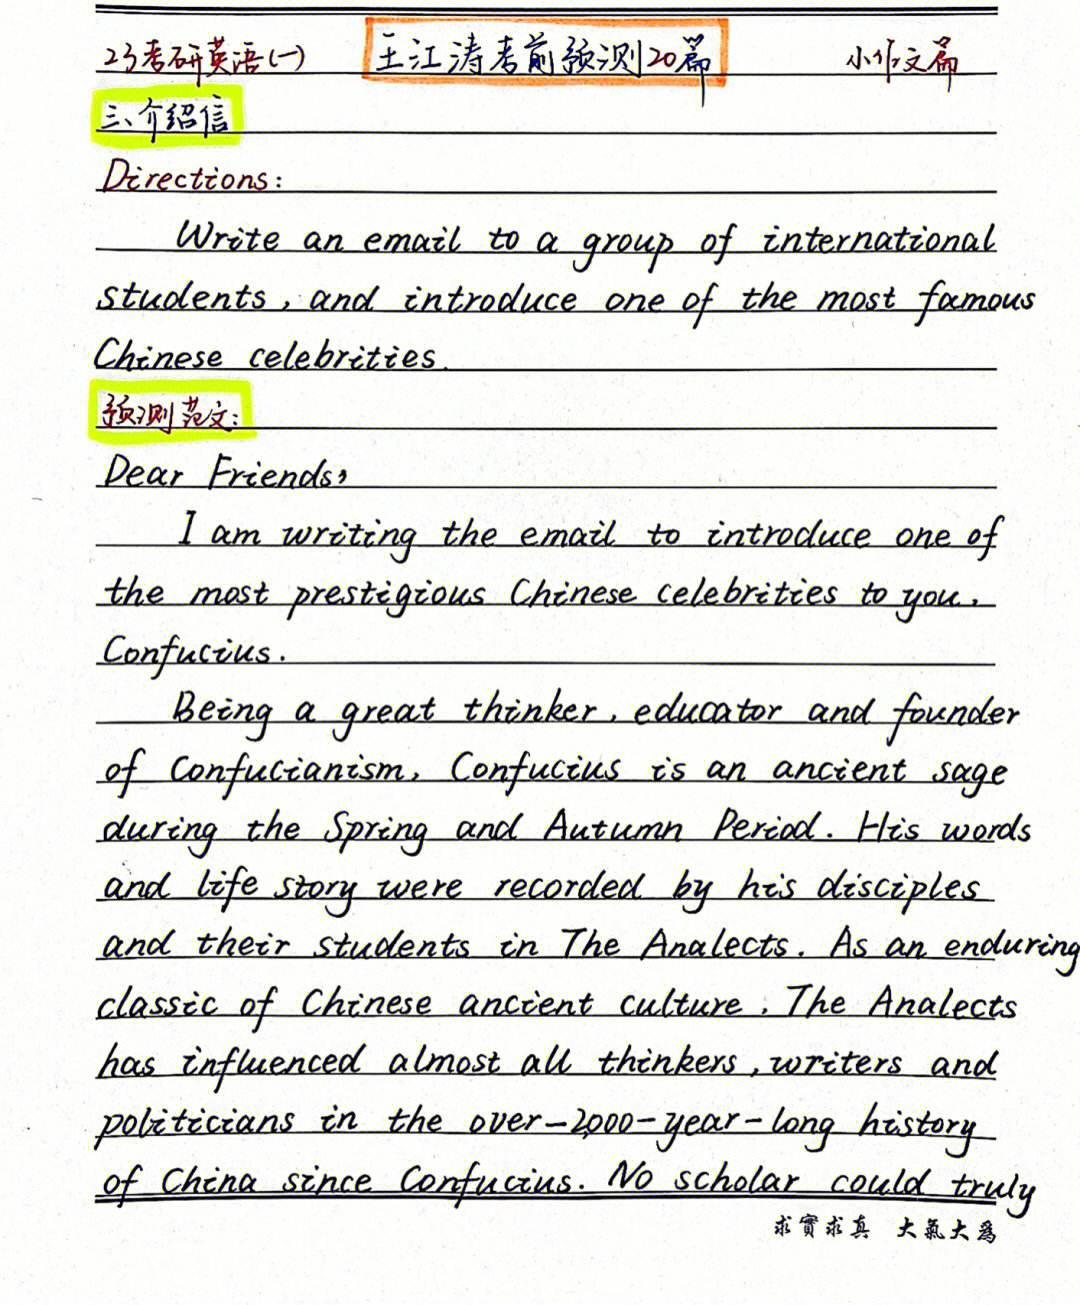 23考研英语(一) 王江涛考前预测20篇 小作文篇
三、介绍信
Directions:
Write an email to a group of international
students, and introduce one of the most famous
Chinese celebrities.
预测范文:
Dear Friends,
I am writing the email to introduce one of
the most prestigious Chinese celebrities to you,
Confucius.
Being a great thinker, educator and founder
of Confucianism, Confucius is an ancient sage
during the Spring and Autumn Period. His words
and life story were recorded by his disciples
and their students in The Analects. As an enduring
classic of Chinese ancient culture, The Analects
has influenced almost all thinkers, writers and
politicians in the over-2,000-year-long history
of China since Confucius. No scholar could truly
求實求真 大氣大爲